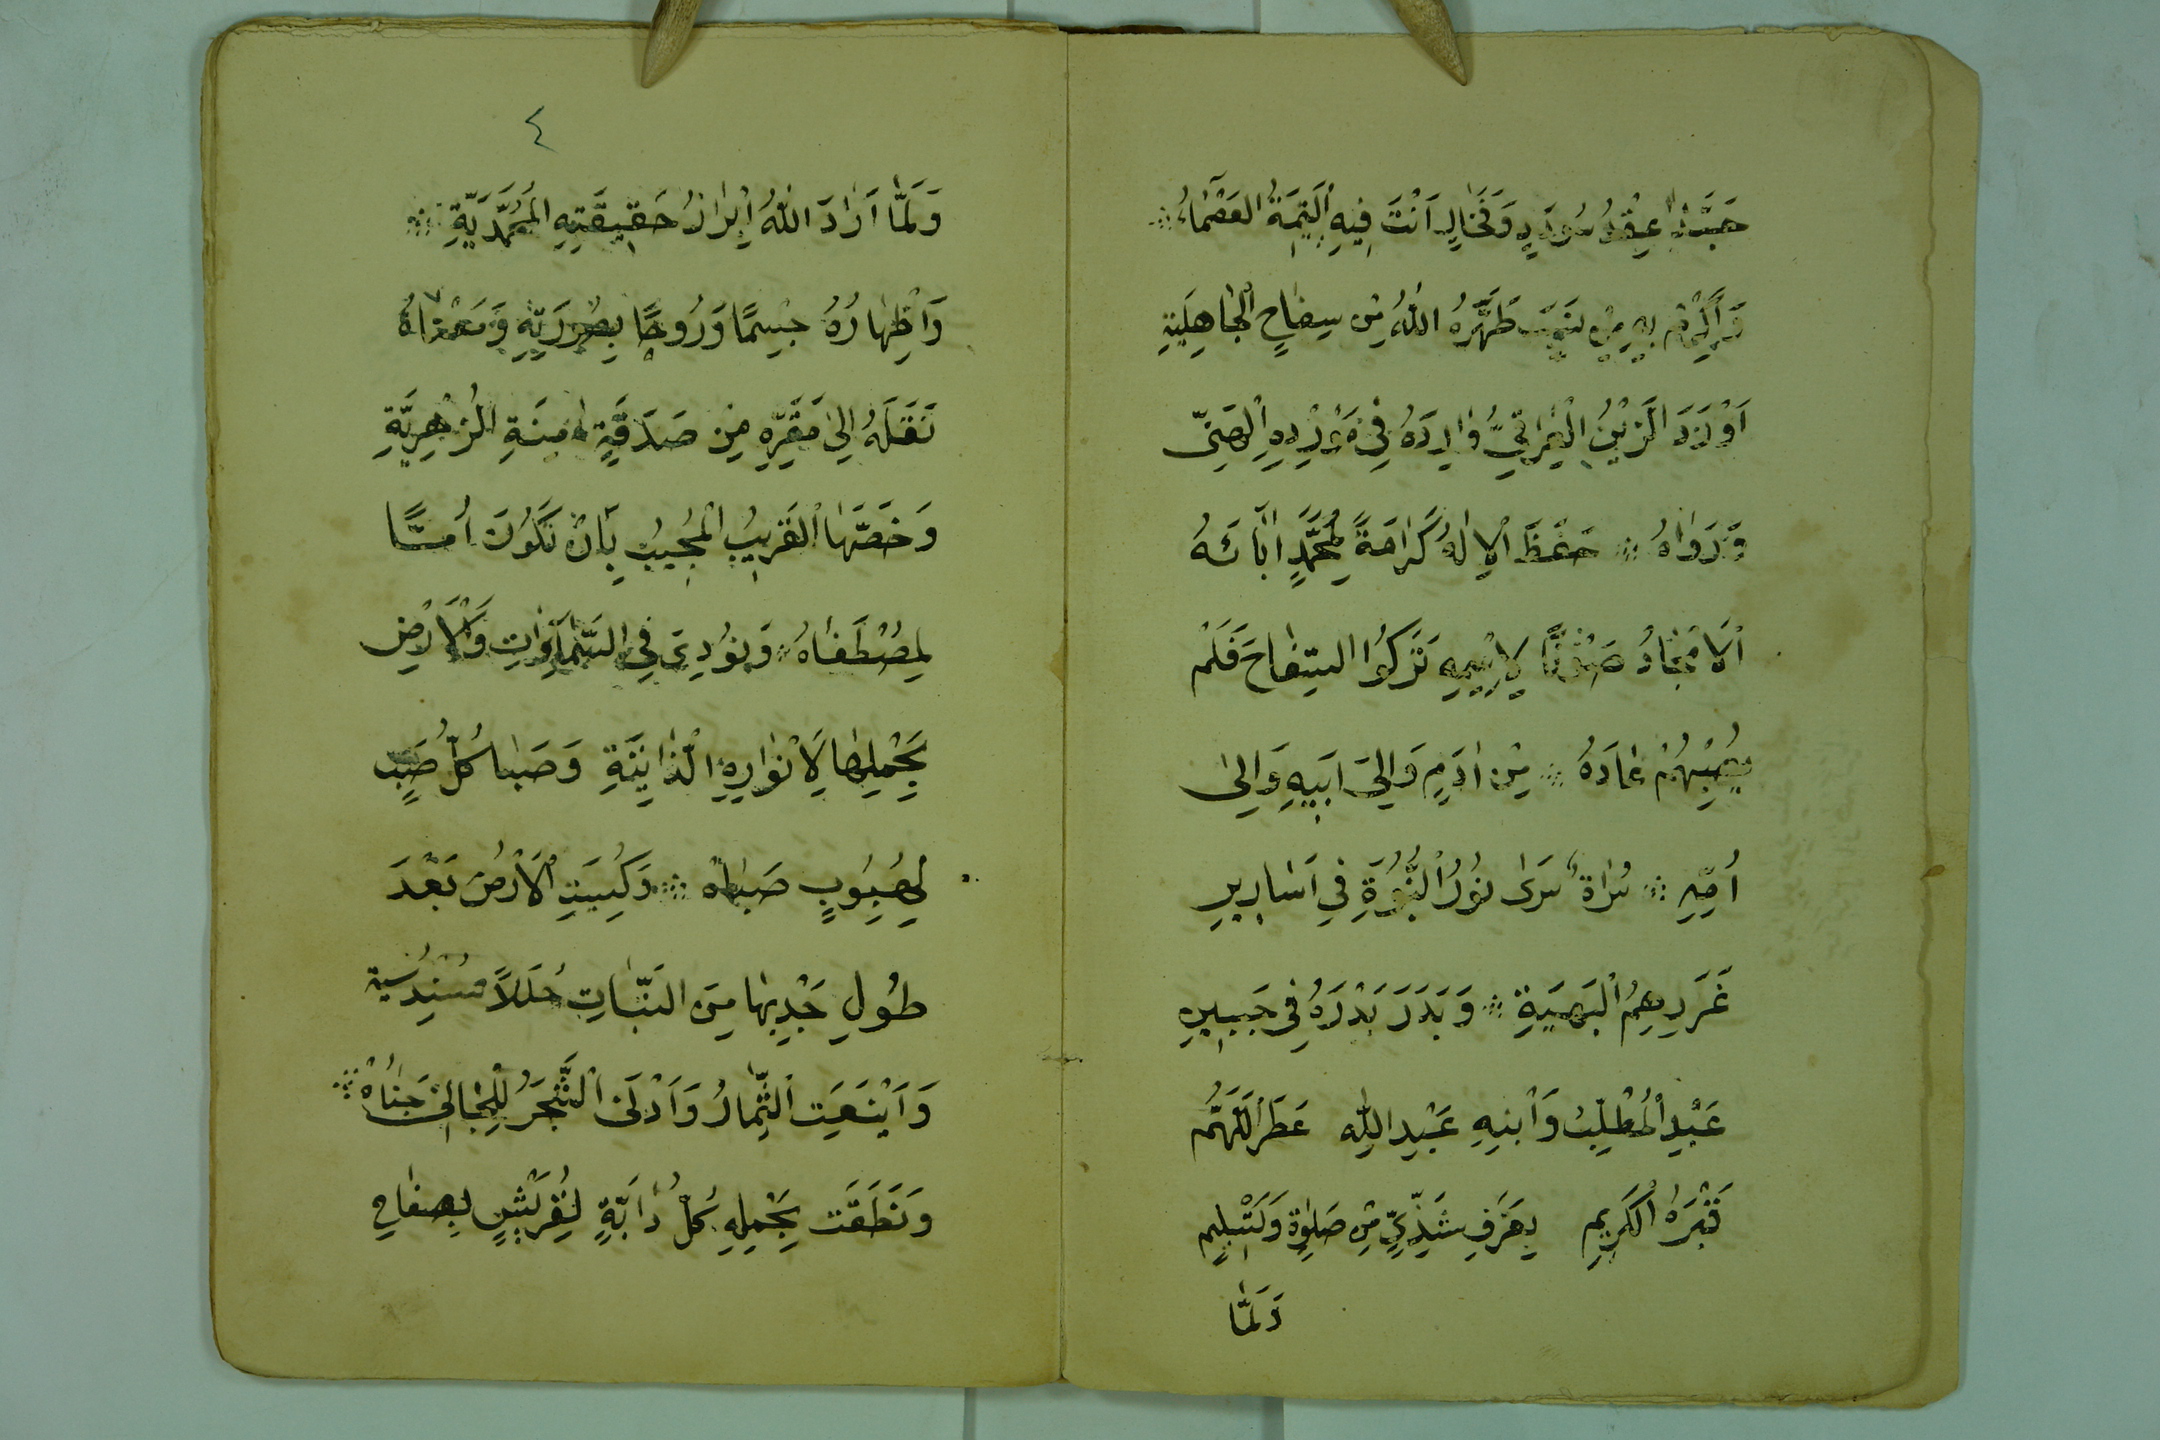 حَبَّذَا عِقْدُ سُودَدٍ وَفَخَارٍ اَنْتَ فِيهِ الْيَتِيمَةُ الْعَصْمَاءُ
وَاَكْرِمْ بِهِ مِنْ نَسَبٍ طَهَّرَهُ اللهُ مِنْ سِفَاحِ الْجَاهِلِيَّةِ
اَوْرَدَ الزَّيْنُ الْعِرَاقِيُّ وَارِدَهُ فِي مَوْرِدِهِ الْهَنِيّ
وَرَوَاهُ حَفِظَ الْاِلٰهُ كَرَامَةً لِمُحَمَّدٍ اٰبَائَهُ
الْاَمْجَادُ صَوْنًا لِاِسْمِهِ تَرَكُوا السِّفَاحَ فَلَمْ
يُصِبْهُمْ عَارُهُ مِنْ اٰدَمٍ وَاِلَى اَبِيهِ وَاِلَى
اُمِّهِ سُرَاةٌ سَرَى نُورُ النُّبُوَّةِ فِي اَسَارِيرِ
غُرَرِهِمُ الْبَهِيَّةِ وَبَدَرَ بَدْرُهُ فِي جَبِينِهِ
عَبْدِ الْمُطَّلِبِ وَابْنِهِ عَبْدِ اللهِ عَطِّرِ اللّٰهُمَّ
قَبْرَهُ الْكَرِيمِ بِعَرْفٍ شَذِيٍّ مِنْ صَلٰوةٍ وَتَسْلِيمٍ
وَلَمَّا
٤
وَلَمَّا اَرَادَ اللهُ اِبْرَازَ حَقِيقَتِهِ الْمُحَمَّدِيَّةِ
وَاِظْهَارُهُ جِسْمًا وَرُوحًا بِصُورَتِهِ وَمَعْنَاهُ
نَقَلَهُ اِلَى مَقَرِّهِ مِنْ صَدَفَةِ اٰمِنَةِ الزُّهْرِيَّةِ
وَخَصَّهَا الْقَرِيبُ الْمُجِيبُ بِاَنْ تَكُونَ اُمًّا
لِمُصْطَفَاهُ وَنُودِيَ فِي السَّمَاوَاتِ وَالْاَرْضِ
بِحَمْلِهَا لِاَنْوَارِهِ الذَّاتِيَّةِ وَصَبَا كُلُّ صَبٍّ
لِهُبُوبِ صَبَاهُ وَكُسِيَتِ الْاَرْضُ بَعْدَ
طُولِ جَدْبِهَا مِنَ النَّبَاتِ حُلَلًا سُنْدُسِيَّة
وَاَيْنَعَتِ الثِّمَارُ وَاَدْنَى الشَّجَرُ لِلْجَانِي جَنَاهُ
وَنَطَقَتْ بِحَمْلِهِ كُلُّ دَابَّةٍ لِقُرَيْشٍ بِصِفَاحِ